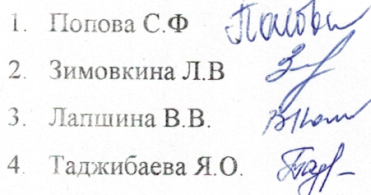 1. Попова С.Ф
2. Зимовкина Л.В
3. Лапшина В.В.
4. Таджибаева Я.О.